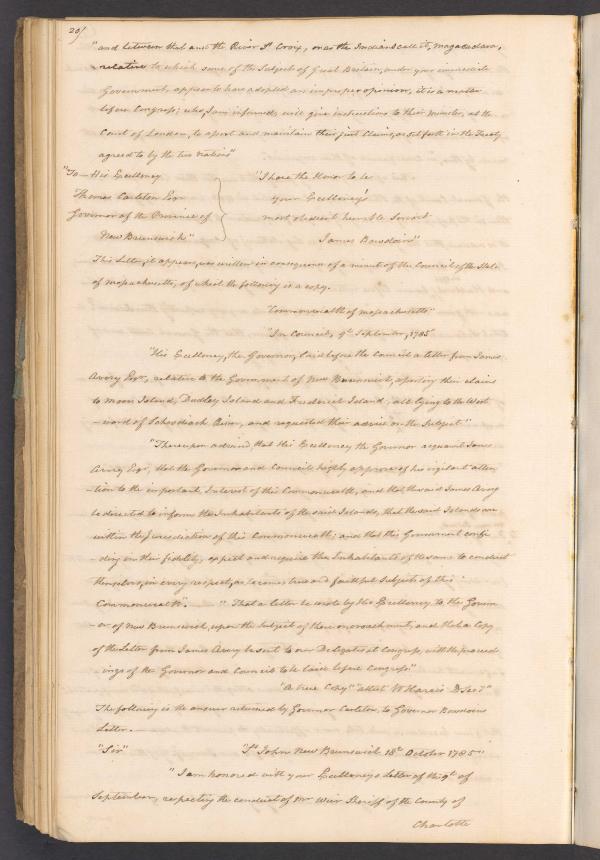 20/
"and between that and the River St. Croix, or as the Indians call it, Magacadava,
-relative to which some of the Subjects of Great Britain, under your immediate
Government, appear to have adopted an improper opinion, it is a matter
before Congress; who, I am informed, will give instructions to their Minister, at the
Court of London, to assert and maintain their just Claims, as set forth in the Treaty
agreed to by the two nations"
"To – His Excellency
Thomas Carleton Esqr
Governor of the Province of
New Brunswick"
"I have the Honor to be
your Excellency's
most obedient humble Servant
James Bowdoin"
This Letter, it appears, was written in consequence of a minute of the Council of the State
of Massachusetts, of which the following is a copy.
"Commonwealth of Massachusetts"
"In Council, 9th September, 1785"
"His Excellency, the Governor, laid before the Council a letter from James
Avery Esqr, relative to the Government of New Brunswick, asserting their claim
to Moose Island, Dudley Island and Frederick Island, all lying to the West
-ward of Schoodiack River, and requested their advice on the Subject"
"Thereupon advised, that His Excellency the Governor acquaint James
Avery Esqr, that the Governor and Council highly approve of his vigilant atten
-tion to the important Interest of this Commonwealth, and that the said James Avery
be directed to inform the Inhabitants of the said Islands, that the said Islands are
within the Jurisdiction of this Commonwealth; and that this Government confi
-ding in their fidelity, expect and require the Inhabitants of the same to conduct
themselves, in every respect, as becomes true and faithful Subjects of this
Commonwealth". "That a letter be wrote by His Excellency to the Govern
-or of New Brunswick, upon the Subject of these encroachments, and that a Copy
of the Letter from James Avery be sent to our Delegates at Congress, with the proceed
-ings of the Governor and Council to be laid before Congress"
"A true Copy" "attest W Harris D Secy"
The following is the answer returned by Governor Carleton, to Governor Bowdoin's
Letter. —
"Sir" "St John New Brunswick 18th October 1785"
"I am honored with your Excellency's Letter of the 9th of
September, respecting the conduct of Mr Wier Sheriff of the County of
Charlotte